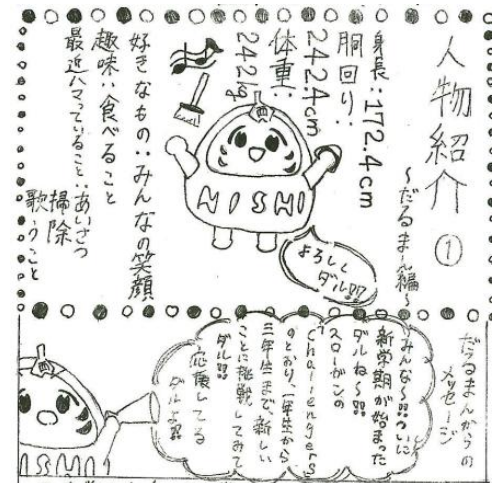 人物紹介①
～だるまん編～
身長：172.4cm
胴回り：
242.4cm
体重：
242kg
好きなもの：みんなの笑顔
趣味：食べること
最近ハマっていること：あいさつ
掃除
歌うこと
NISHI
よろしく
ダル!!!
だるまんからの
メッセージ
みんな～!!ついに
新学期が始まった
ダルね～!!
スローガンの
Challengers
のとおり、一年生から
三年生まで、新しい
ことに挑戦してみて
ダル!!
応援してる
ダルよ!!